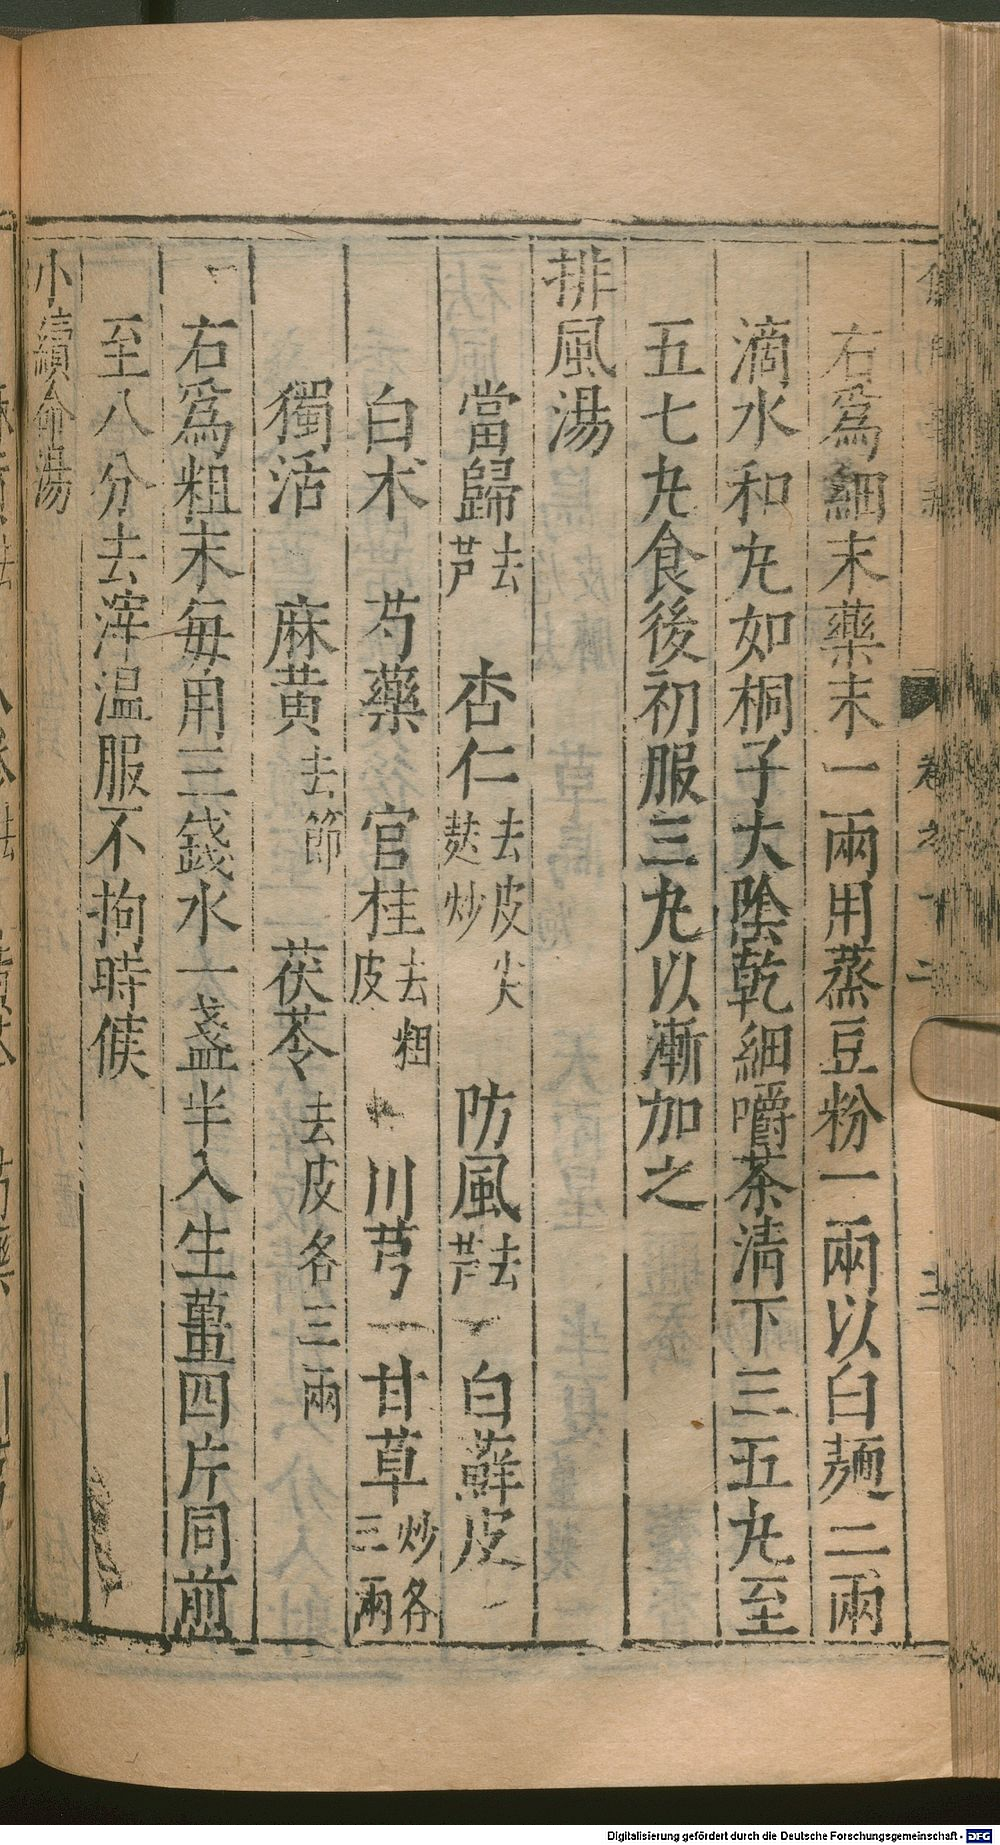 右爲細末藥末一兩用蒸豆粉一兩以白麵二兩
滴水和丸如桐子大陰乾細嚼茶清下三五丸至
五七丸食後初服三丸以漸加之
排風湯
當歸去芦 杏仁去皮尖麸炒 防風去芦 白蘚皮
白朮 芍藥 官桂去粗皮 川芎 甘草炒各三兩
獨活 麻黃去節 茯苓去皮各三兩
右爲粗末每用三錢水一盞半入生薑四片同煎
至八分去滓温服不拘時候
小續命湯
卷之十二
Digitalisierung gefördert durch die Deutsche Forschungsgemeinschaft - DFG